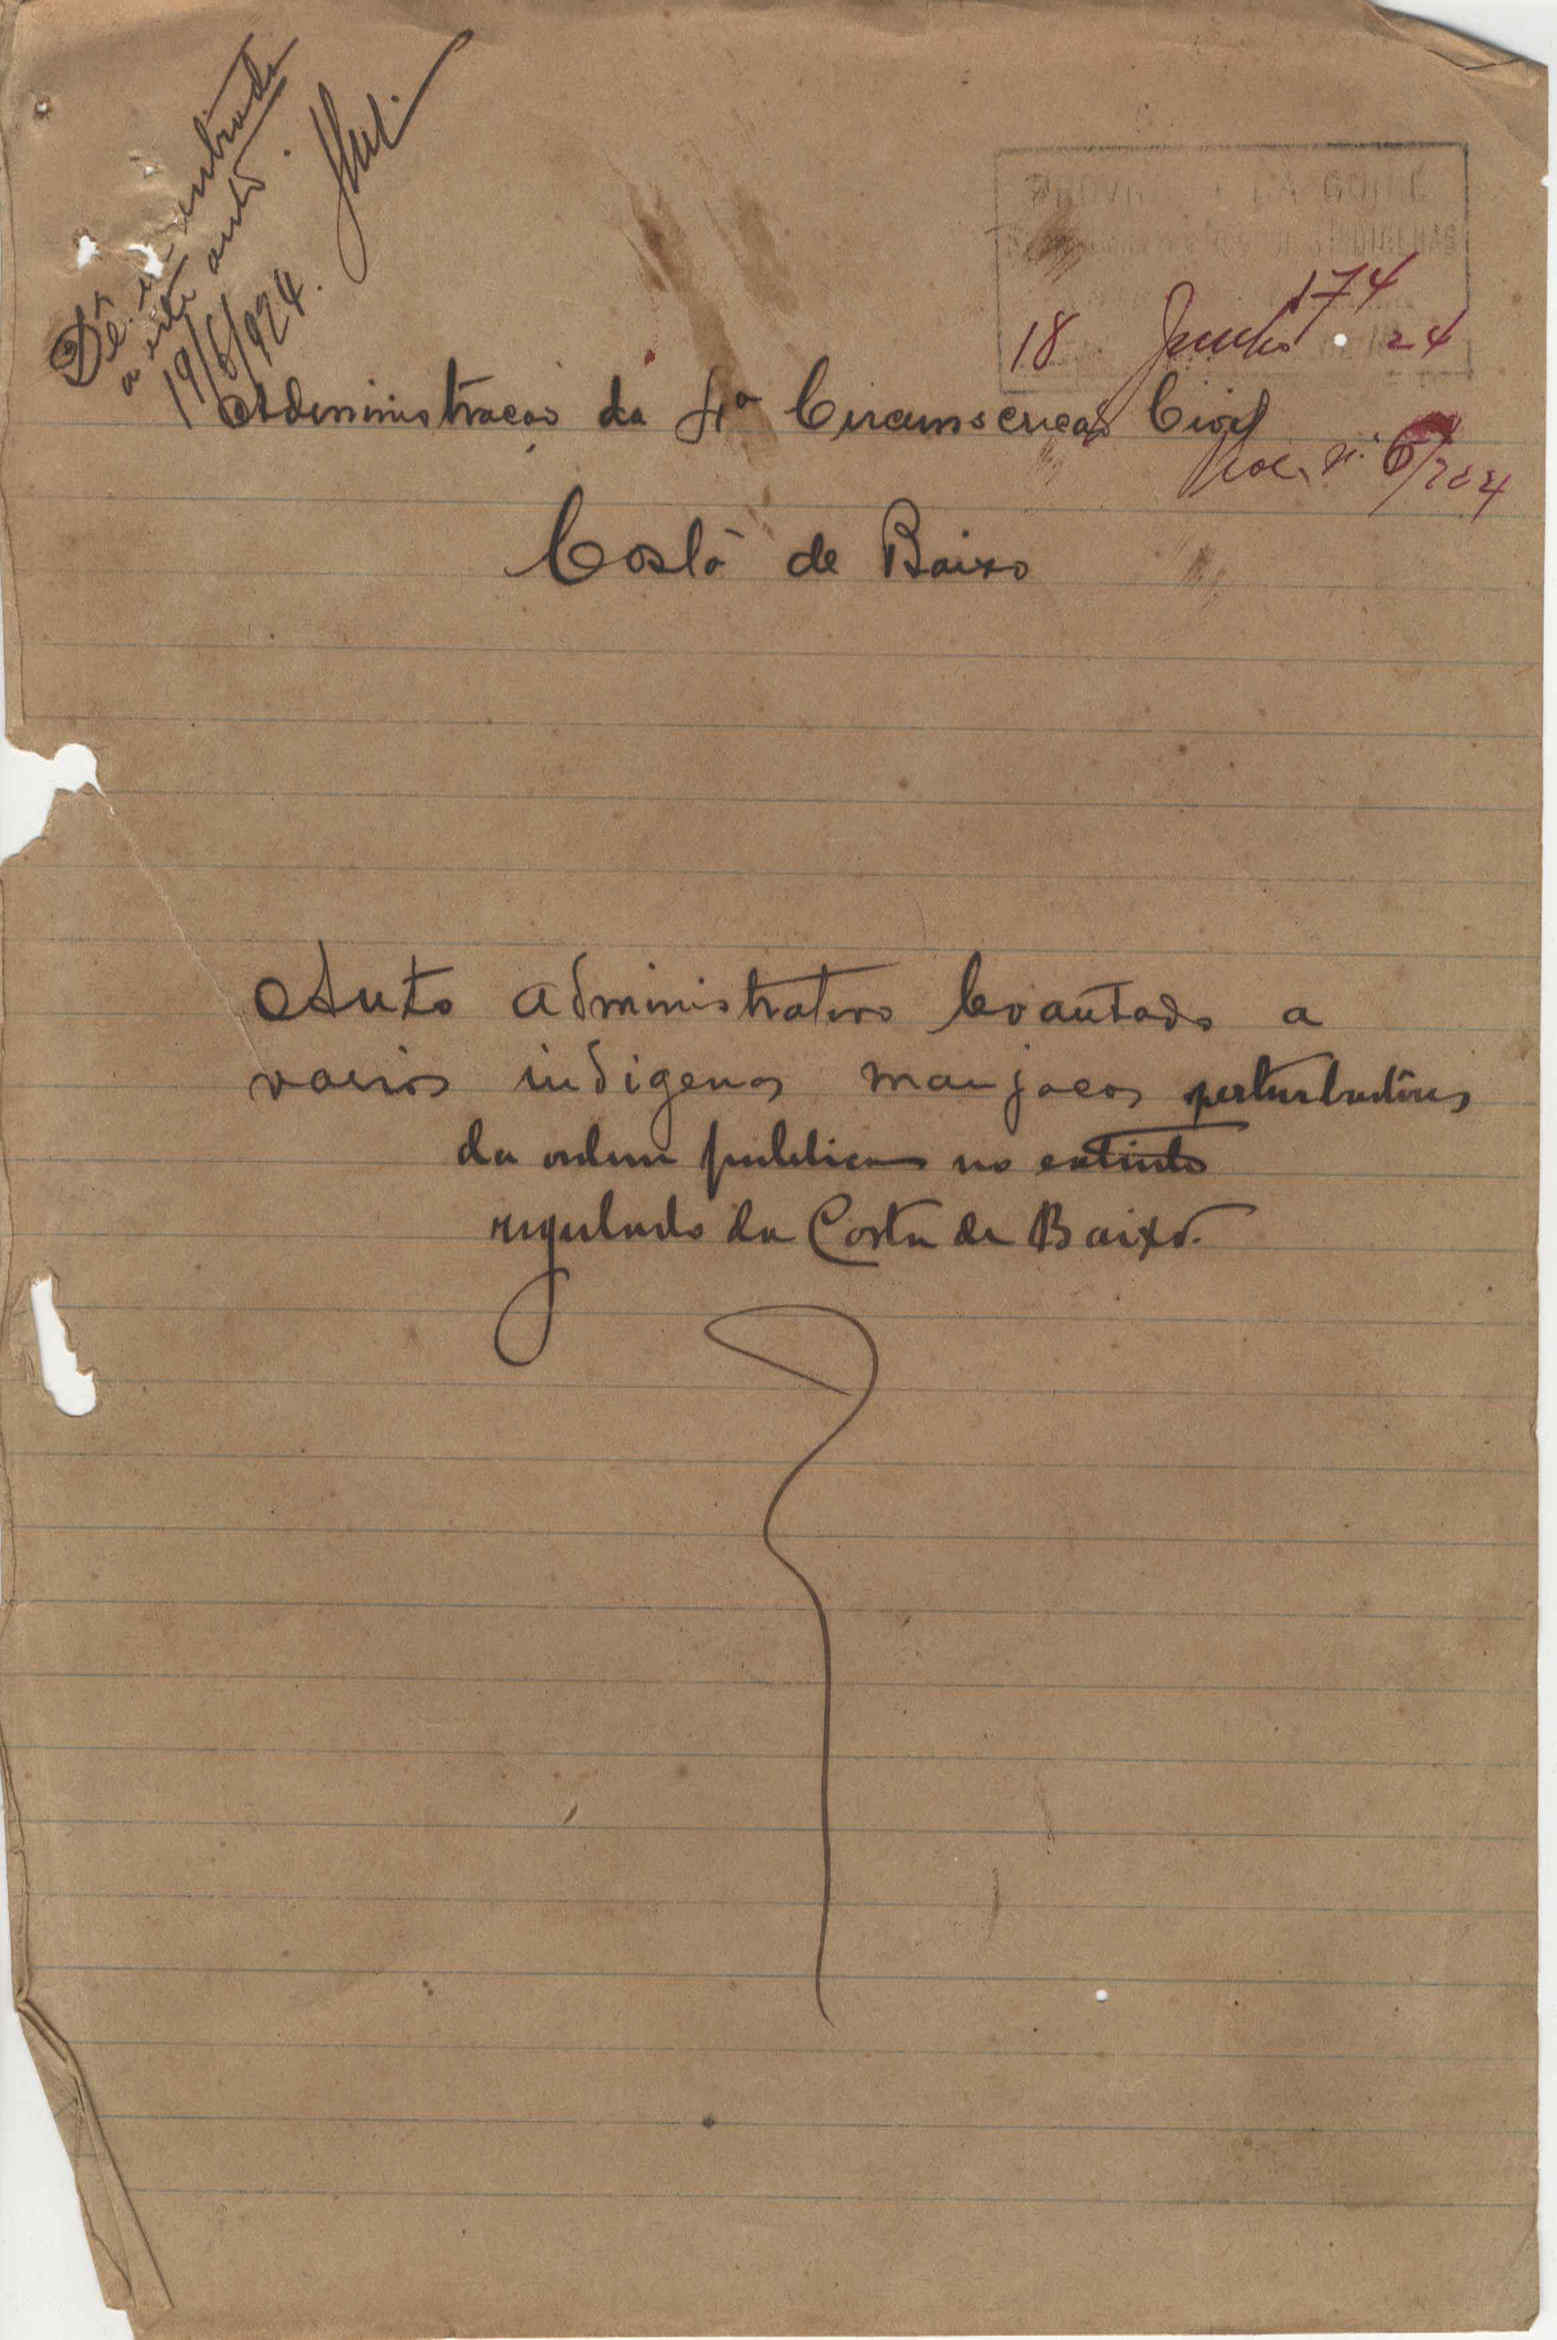 Dê-se entrada
a este auto.
19/6/924.
174
18 Junho 24
Administracao da 4ª Circumscricao Civil
Proc. nº 6/924
Costa de Baixo
Auto administrativo levantado a
varios indigenas manjacos perturbadores
da ordem publica no extinto
regulado da Costa de Baixo.